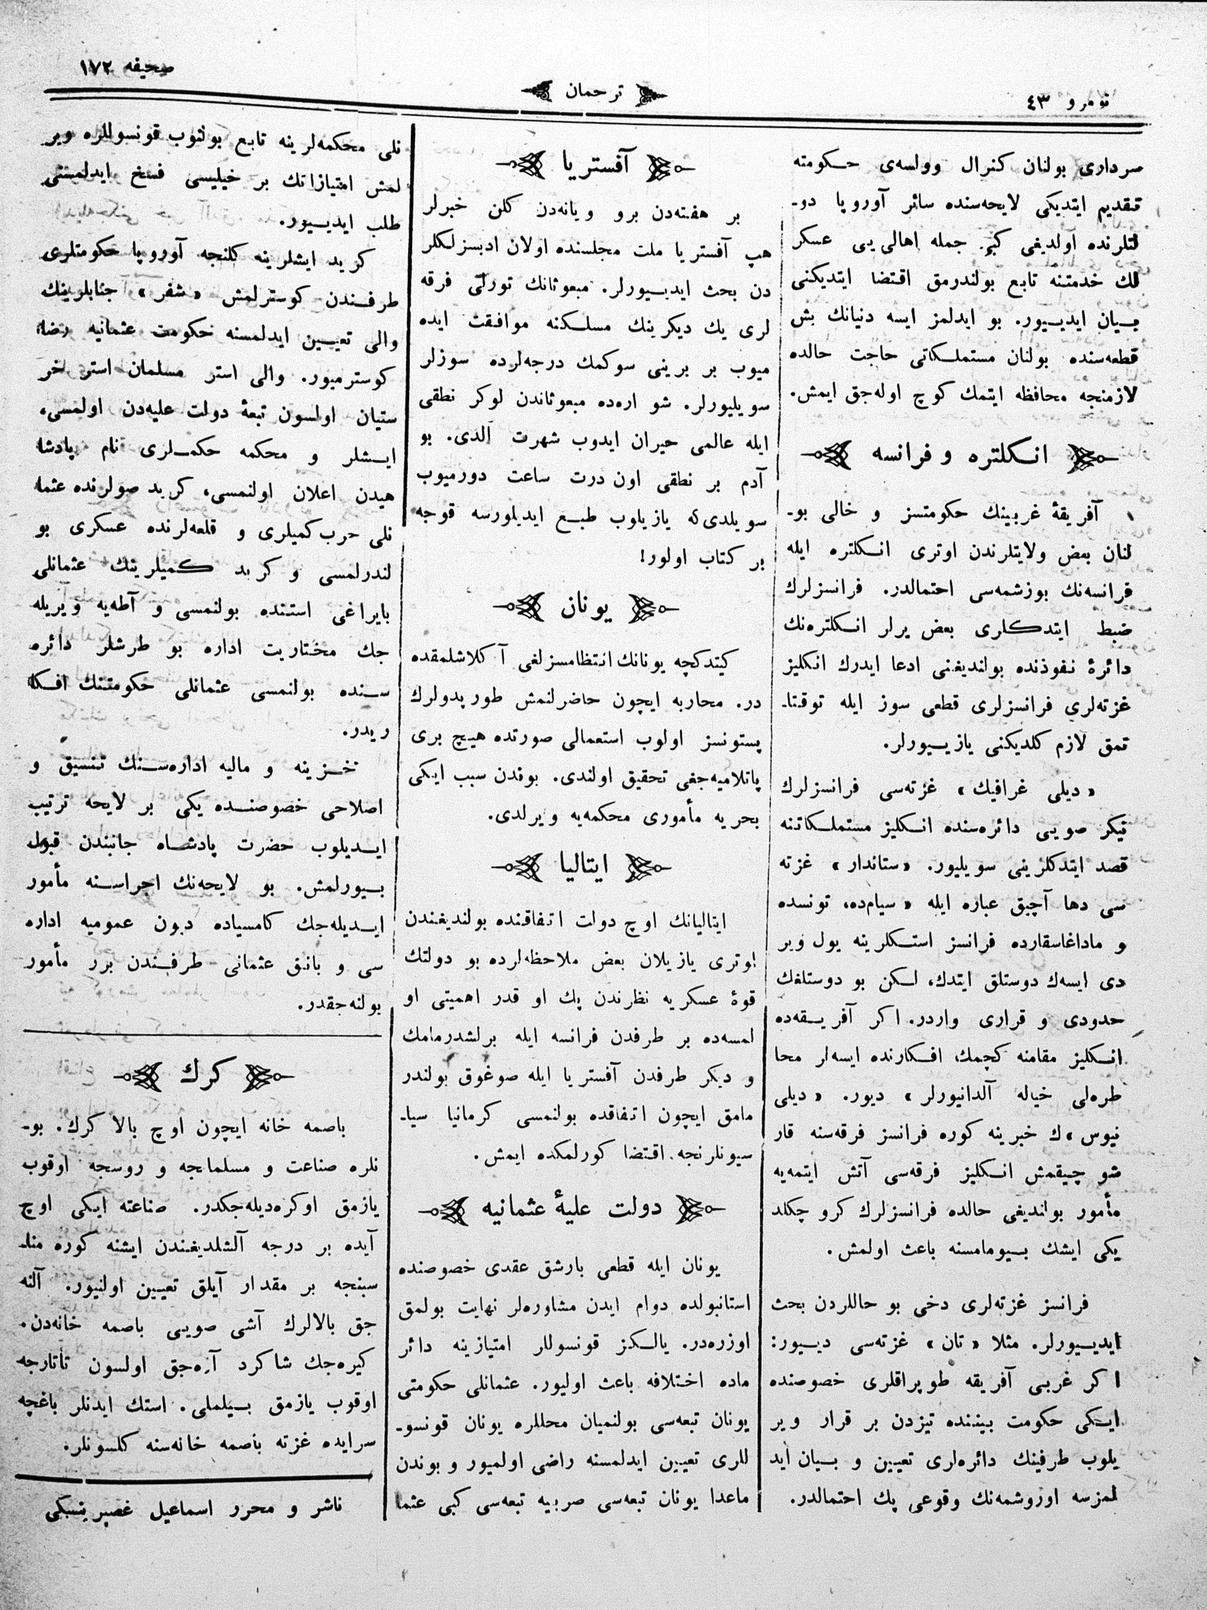 نومرو ٤٣
ترجمان
صحیفه ١٧٢
سرداری بولنان كنرال وولسه‌ی حكومته
تقدیم ایتدیكی لایحه‌سنده سائر آوروپا دو-
لتلرنده اولدیغی كبی جمله اهالی‌یی عسكر
لك خدمتنه تابع بولندرمق اقتضا ایتدیكنی
بیان ایدییور. بو ایدلمز ایسه دنیانك بش
قطعه‌سنده بولنان مستملكاتی حاجت حالده
لازمنجه محافظه ایتمك كوچ اوله‌جق ایمش.
انكلتره و فرانسه
آفریقهٔ غربینك حكومتسز و خالی بو-
لنان بعض ولایتلرندن اوتری انكلتره ایله
فرانسه‌نك بوزشمه‌سی احتمالدر. فرانسزلرك
ضبط ایتدكلری بعض یرلر انكلتره‌نك
دائرهٔ نفوذنده بولندیغنی ادعا ایدرك انكلیز
غزته‌لری فرانسزلری قطعی سوز ایله توقتا-
تمق لازم كلدیكنی یازییورلر.
« دیلی غرافیك » غزته‌سی فرانسزلرك
نیكر صویی دائره‌سنده انكلیز مستملكاتنه
قصد ایتدكلرینی سویلیور. « ستاندار » غزته
سی دها آچیق عباره ایله « سیام‌ده، تونسده
و ماداغاسقارده فرانسز استكلرینه یول ویر
دی ایسه‌ك دوستلق ایتدك، لكن بو دوستلغك
حدودی و قراری واردر. اكر آفریقه‌ده
انكلیز مقامنه كچمك افكارنده ایسه‌لر محا
طره‌لی خیاله آلدانیورلر » دیور. « دیلی
نیوس » ك خبرینه كوره فرانسز فرقه‌سنه قار
شو چیقمش انكلیز فرقه‌سی آتش ایتمه‌یه
مأمور بولندیغی حالده فرانسزلرك كرو چكلد
یكی ایشك بیومامسنه باعث اولمش.
فرانسز غزته‌لری دخی بو حاللردن بحث
ایدییورلر. مثلا « تان » غزته‌سی دییور:
اكر غربی آفریقه طوپراقلری خصوصنده
ایكی حكومت بیننده تیزدن بر قرار ویر
یلوب طرفینك دائره‌لری تعیین و بیان اید
لمزسه اوروشمه‌نك وقوعی پك احتمالدر.
آفستریا
بر هفته‌دن برو ویانه‌دن كلن خبرلر
هپ آفستریا ملت مجلسنده اولان ادبسزلكلر
دن بحث ایدییورلر. مبعوثانك تورلی فرقه
لری یك دیكرینك مسلكنه موافقت ایده
میوب بر برینی سوكمك درجه‌لرده سوزلر
سویلیورلر. شو اره‌ده مبعوثاندن لوكر نطقی
ایله عالمی حیران ایدوب شهرت الدی. بو
آدم بر نطقی اون درت ساعت دورمیوب
سویلدی كه یازیلوب طبع ایدیلورسه قوجه
بر كتاب اولور!
یونان
كیتدكچه یونانك انتظامسزلغی آكلاشلمقده
در. محاربه ایچون حاضرلنمش طورپدولرك
پستونسز اولوب استعمالی صورتده هیچ بری
پاتلامیه‌جغی تحقیق اولندی. بوندن سبب ایكی
بحریه مأموری محكمه‌یه ویرلدی.
ایتالیا
ایتالیانك اوچ دولت اتفاقنده بولندیغندن
اوتری یازیلان بعض ملاحظه‌لرده بو دولتك
قوهٔ عسكریه نظرندن پك او قدر اهمیتی او
لمسه‌ده بر طرفدن فرانسه ایله برلشدرمامك
و دیكر طرفدن آفستریا ایله صوغوق بولندر
مامق ایچون اتفاقده بولنمسی كرمانیا سیا-
سیونلرنجه اقتضا كورلمكده ایمش.
دولت علیهٔ عثمانیه
یونان ایله قطعی بارشق عقدی خصوصنده
استانبولده دوام ایدن مشاوره‌لر نهایت بولمق
اوزره‌در. یالكز قونسوللر امتیازینه دائر
ماده اختلافه باعث اولیور. عثمانلی حكومتی
یونان تبعه‌سی بولنمیان محللره یونان قونسو-
للری تعیین ایدلمسنه راضی اولمیور و بوندن
ماعدا یونان تبعه‌سی صربیه تبعه‌سی كبی عثما
نلی محكمه‌لرینه تابع بولنوب قونسوللره ویر
لمش امتیازاتك بر خیلیسی فسخ ایدلمسنی
طلب ایدییور.
كرید ایشلرینه كلنجه آوروپا حكومتلری
طرفندن كوسترلمش « شفر » جنابلرینك
والی تعیین ایدلمسنه حكومت عثمانیه رضا
كوسترمیور. والی استر مسلمان استر خر
ستیان اولسون تبعهٔ دولت علیه‌دن اولمسی،
ایشلر و محكمه حكملری نام پادشا
هیدن اعلان اولنمسی، كرید صولرنده عثما
نلی حرب كمیلری و قلعه‌لرنده عسكری بو
لندرلمسی و كرید كمیلرینك عثمانلی
بایراغی استنده بولنمسی و آطه‌یه ویریله
جك مختاریت اداره بو طرشلر دائره
سنده بولنمسی عثمانلی حكومتنك افكا
ریدر.
خزینه و مالیه اداره‌سنك تنسیق و
اصلاحی خصوصنده یكی بر لایحه ترتیب
ایدیلوب حضرت پادشاه جانبندن قبول
بیورلمش. بو لایحه‌نك اجراسنه مأمور
ایدیله‌جك كامسیاده دیون عمومیه اداره
سی و بانق عثمانی طرفندن برر مأمور
بولنه‌جقدر.
كرك
باصمه خانه ایچون اوچ بالا كرك. بو-
نلره صناعت و مسلمانجه و روسجه اوقوب
یازمق اوكره‌دیله‌جكدر. صناعته ایكی اوچ
آیده بر درجه آلشلدیغندن ایشنه كوره منا-
سبنجه بر مقدار آیلق تعیین اولنیور. آلنه
جق بالالرك آشی صویی باصمه خانه‌دن.
كیره‌جك شاكرد آزه‌جق اولسون تاتارجه
اوقوب یازمق بیلملی. استك ایدنلر باغچه
سرایده غزته باصمه خانه‌سنه كلسونلر.
ناشر و محرر اسماعیل غصپرینسكی